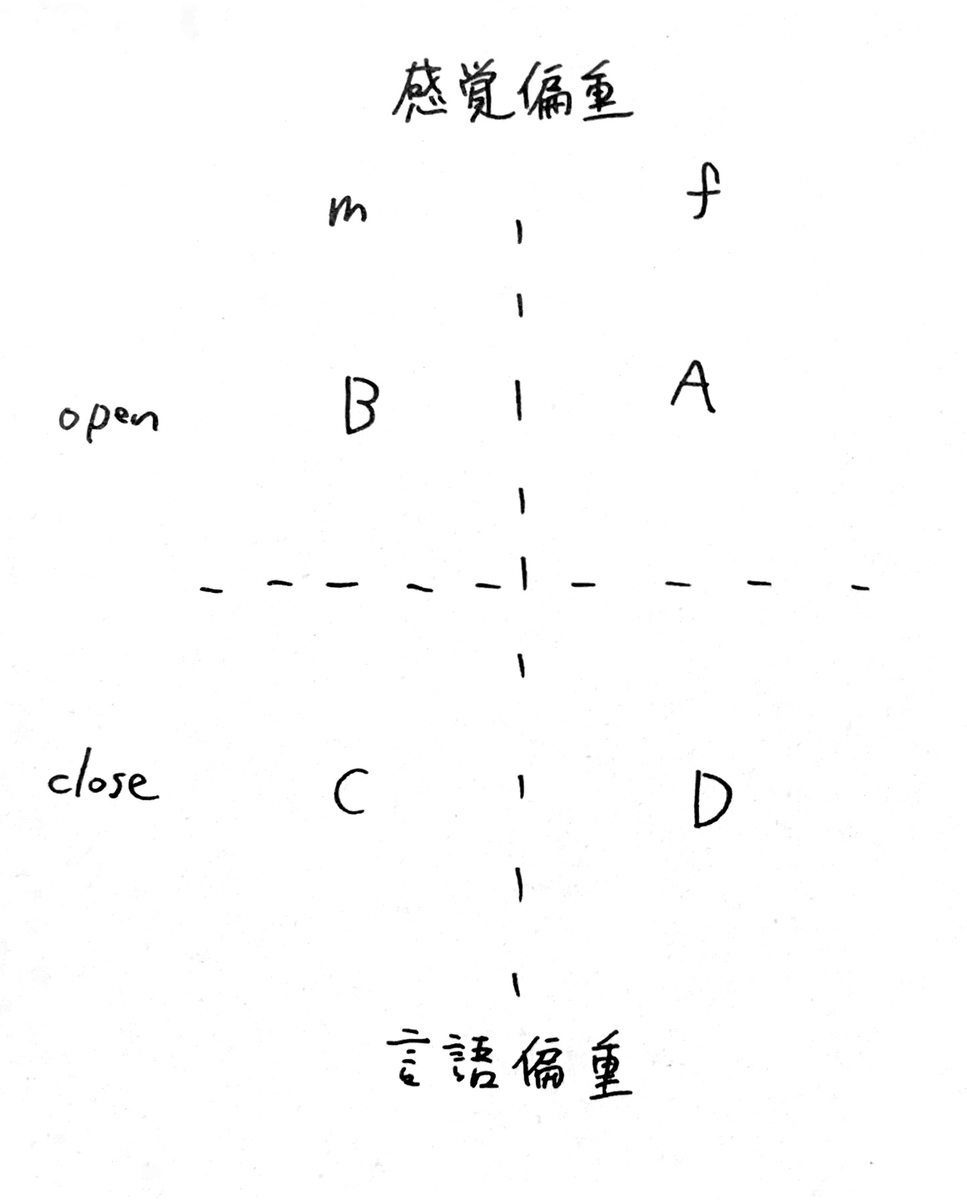 感覚偏重
m f
open B A
close C D
言語偏重